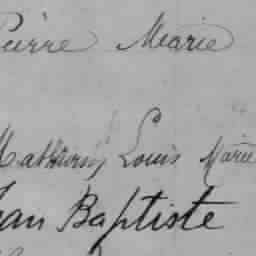 Pierre Marie
Mathurin, Louis Marie
Jean Baptiste